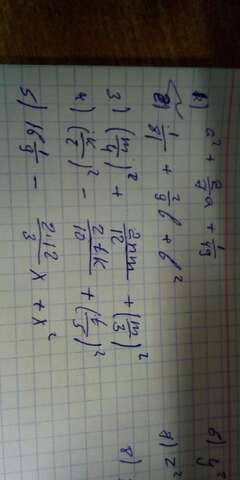 1) a² + 2/7 a + 1/49
2) 1/81 + 2/9 b + b²
3) (m/4)² + 2nm/12 + (m/3)²
4) (k/2)² - 2tk/10 + (t/5)²
5) 16 1/9 - 2·12/3 x + x²
6) y²
z²
8)